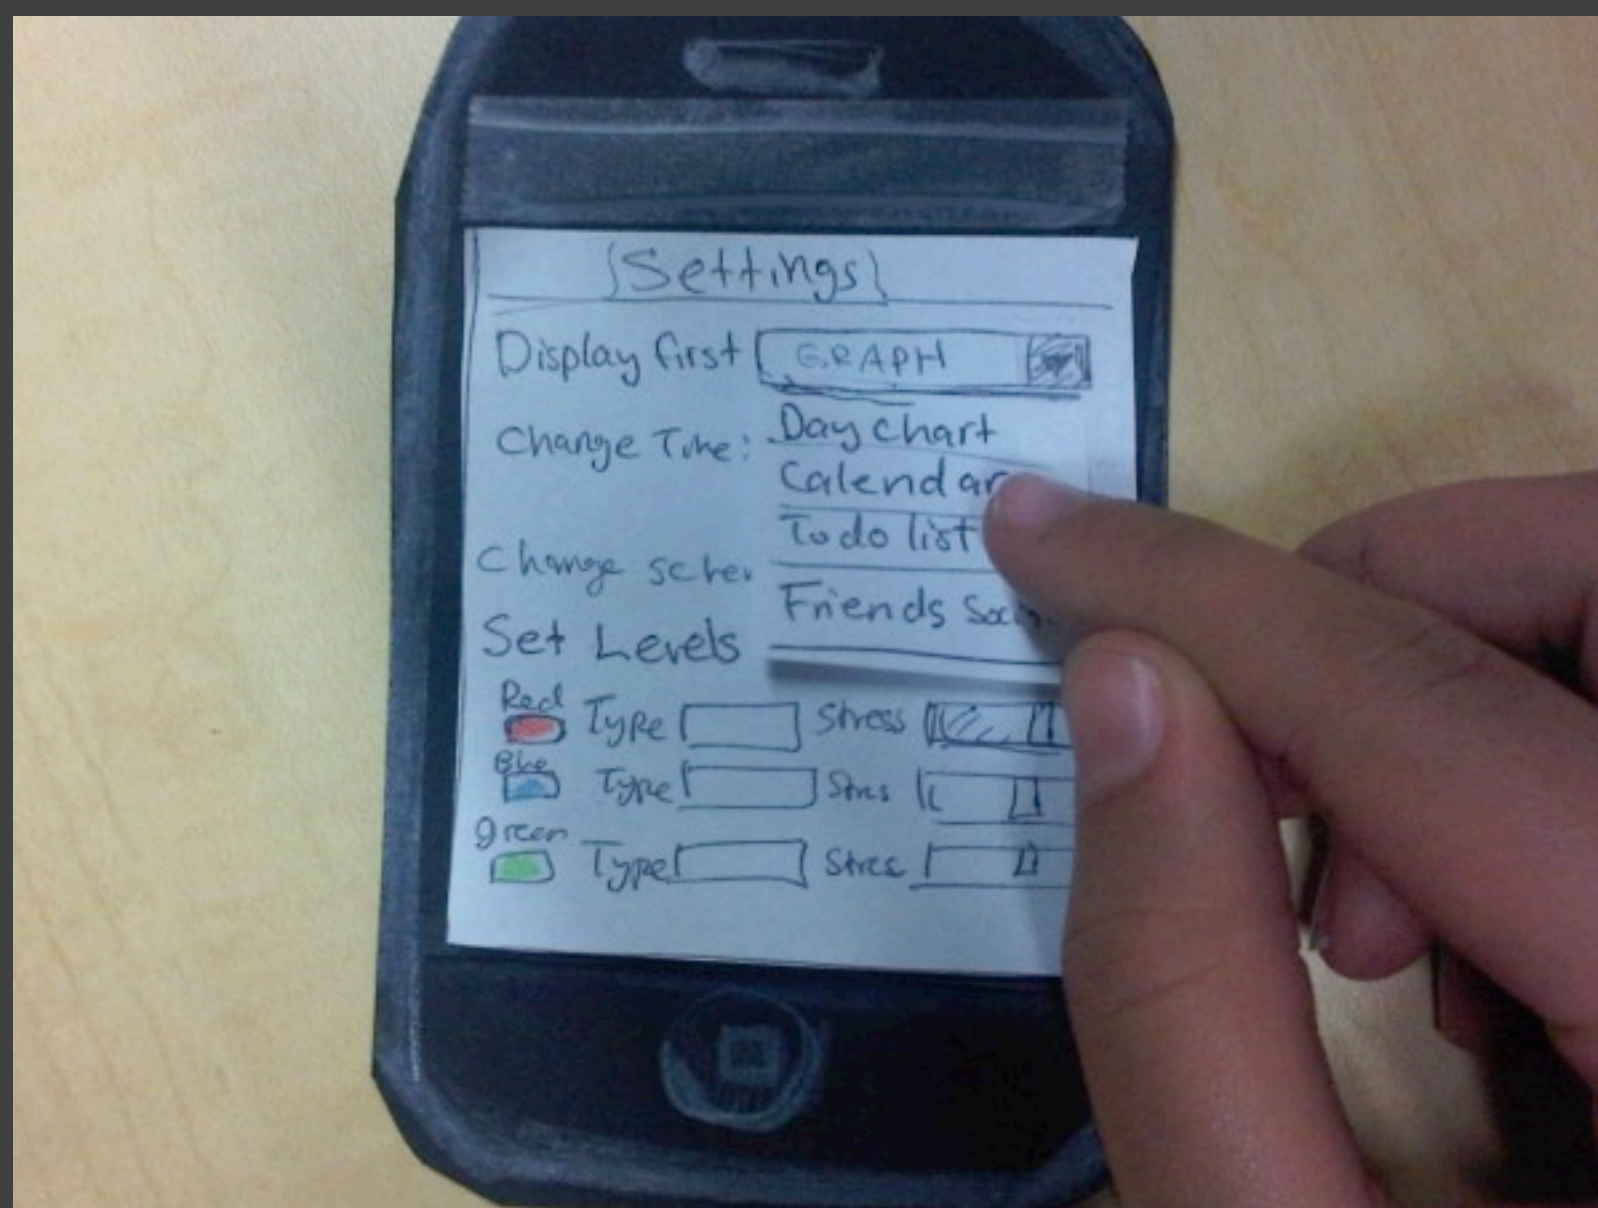 Settings
Display first GRAPH
Day chart
Change Time:
Calendar
To do list
Change
Friends
Set Levels
Red
Type Stress
Blue
Type Stres
green
Type Stres